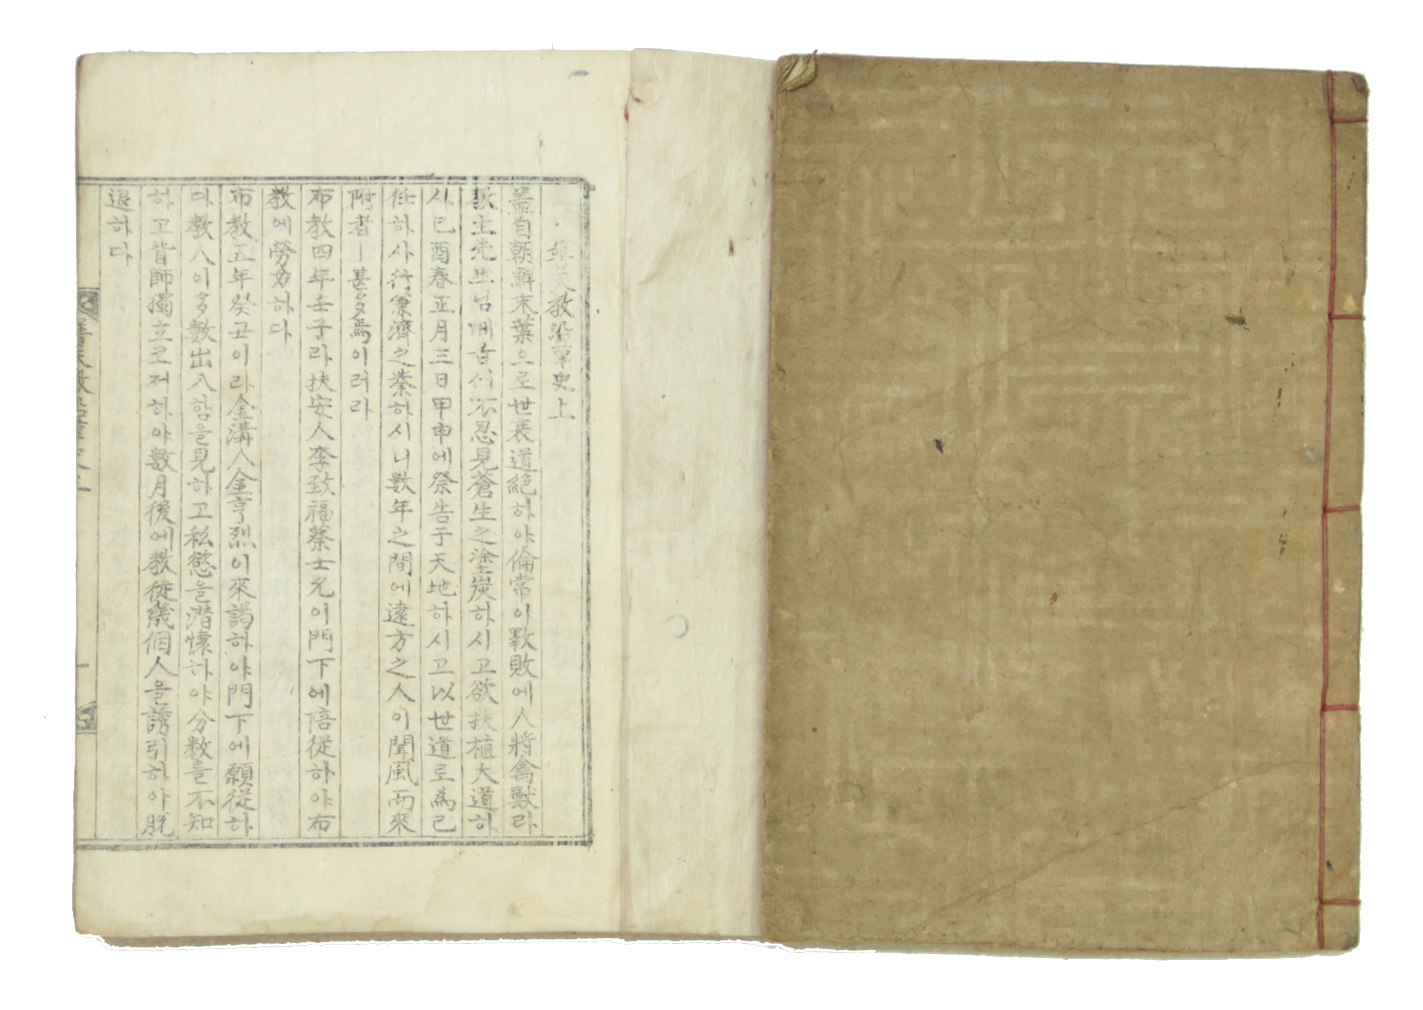 普天教沿革史上
蓋自朝鮮末葉으로世衰道絶하야倫常이斁敗에人將禽獸라
教主先生님께읍서不忍見蒼生之塗炭하시고欲扶植大道하
시己酉春正月三日甲申에祭告于天地하시고以世道로爲己
任하사行兼濟之業하시니數年之間에遠方之人이聞風而來
附者ㅣ甚多焉이러라
布教四年壬子라扶安人李致福蔡士允이門下에陪從하야布
教에勞力하다
布教五年癸丑이라金溝人金亨烈이來謁하야門下에願從하
다教人이多數出入함을見하고私慾을潛懷하야分數를不知
하고背師獨立로저하야數月後에教徒幾個人을誘引하야脫
退하다
普天教沿革史上
一